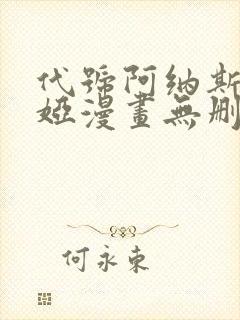 代號阿納斯
婭漫畫無刪
何永東